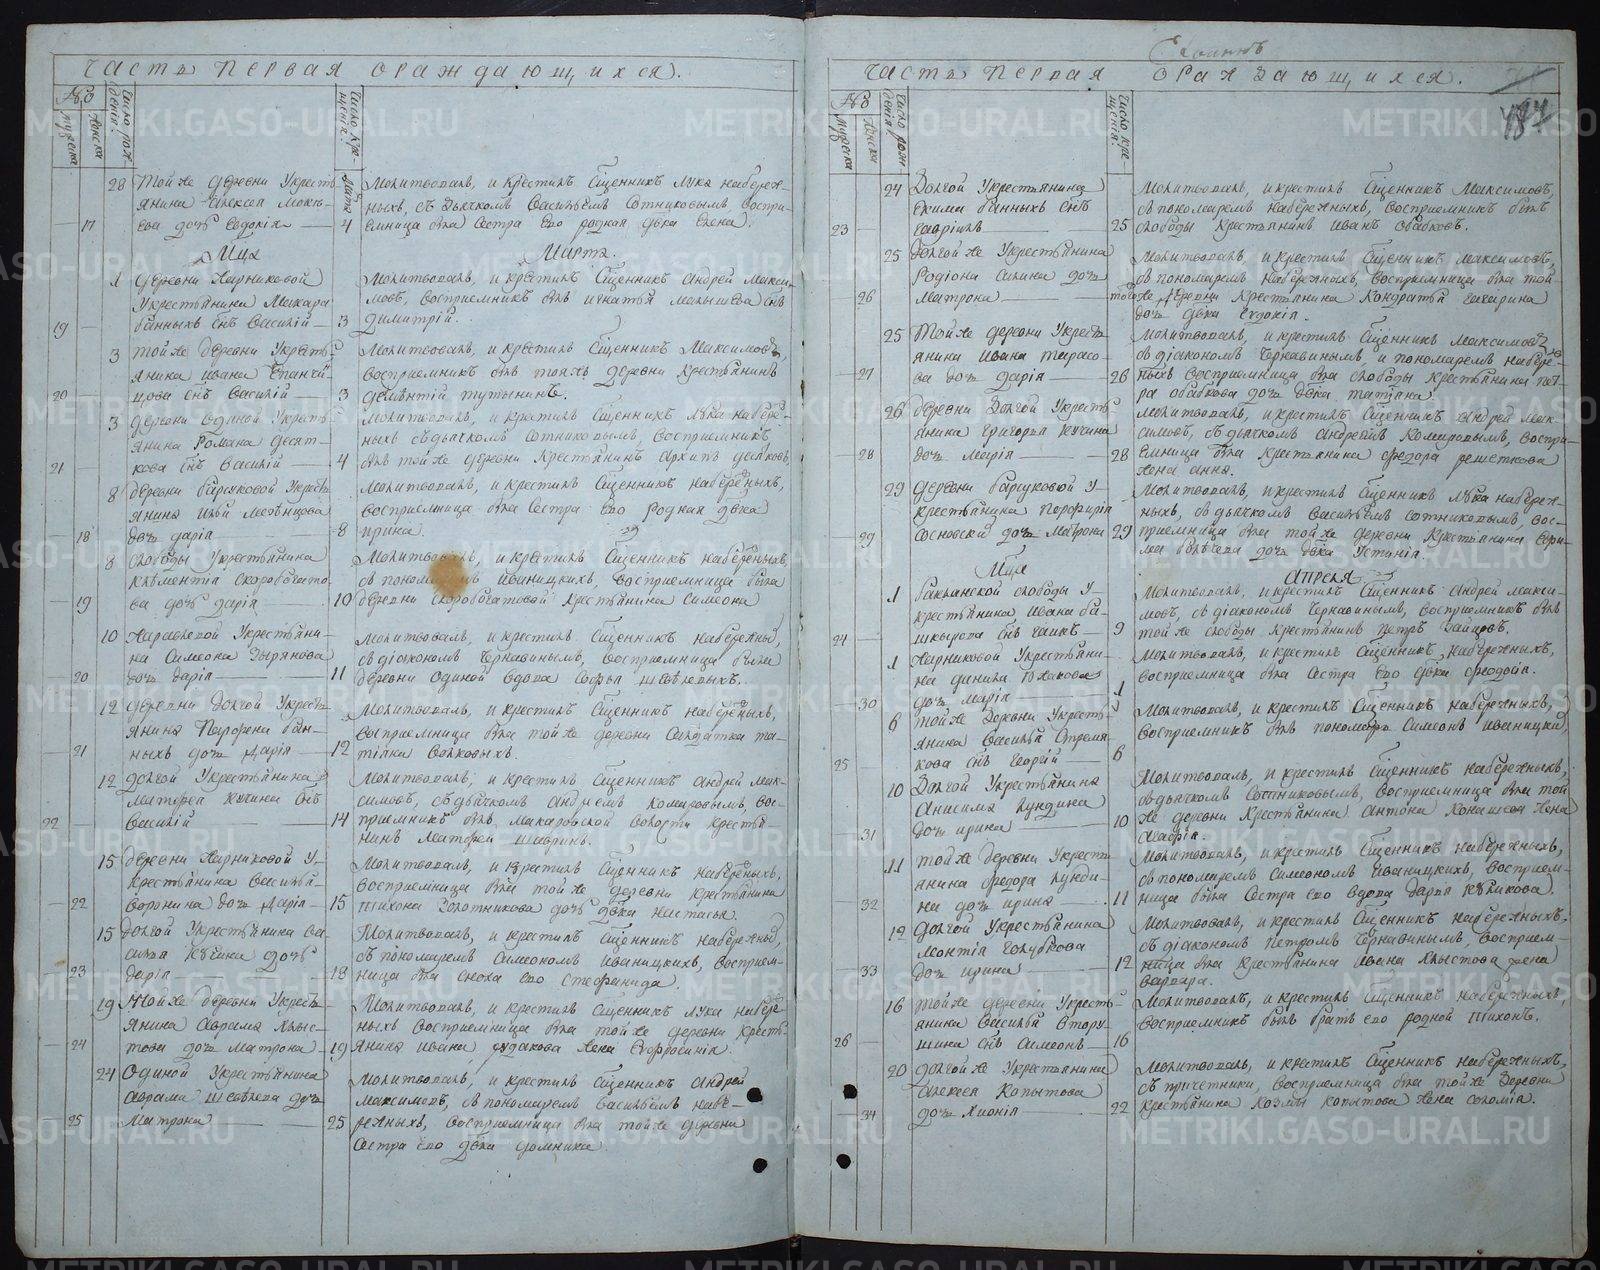 ЧАСТЬ ПЕРВАЯ ОРАЖДАЮЩИХСЯ.
№
мужеска
женска
Число рождения
Число крещения
28 Той же деревни Укресть
янина Алексея Моке
17 ева дочь Евдокия
Марта 4
Молитвовалъ, и крестилъ Сщенникъ Лука Набереж
ныхъ, съ дьячкомъ Васильемъ Сотниковымъ воспри
емница была Сестра Его родная девка Елена.
Мца Марта.
1 Деревни Жарниковой
Укрестьянина Макара
19 банныхъ снъ Василий 3
Молитвовалъ, и крестилъ Сщенникъ Андрей Макси
мовъ, восприемникъ былъ Игнатья Малышева снъ
Димитрий.
3 Той же деревни Укресть
янина Ивана Епанчи
20 цова снъ Василий 3
Молитвовалъ, и крестилъ Сщенникъ Максимовъ,
восприемникъ былъ тояжъ деревни крестьянинъ
3 деревни Одиной Укресть
янина Романа Десят
21 кова снъ Василий 4
Молитвовалъ, и крестилъ Сщенникъ Лука Набереж
ныхъ съ дьячкомъ Сотниковымъ, восприемникъ
былъ той же деревни крестьянинъ Архипъ Десятковъ
8 деревни барсуковой Укресть
18 дочь дарія 8
Молитвовалъ, и крестилъ Сщенникъ Набережныхъ,
восприемница была Сестра Его Родная девка
ирина.
8 слободы Укрестьянина
Клементія Скоробогато
19 ва дочь дарія 10
Молитвовалъ, и крестилъ Сщенникъ Набережныхъ,
съ пономаремъ Иваницкихъ, восприемница была
деревни Скоробогатовой крестьянина Симеона
10 Укрестьяни
на Симеона Зырянова
20 дочь дарія 11
Молитвовалъ, и крестилъ Сщенникъ Набережны,
съ діакономъ Чернавинымъ, восприемница была
деревни Одиной вдова Софья Шевелевыхъ.
12 деревни долгой Укресть
янина Порфена бан
21 ныхъ дочь дарія 12
Молитвовалъ, и крестилъ Сщенникъ Набережныхъ,
восприемница была той же деревни Салдатка та
тіяна Волковыхъ.
12 долгой Укрестьянина
Матфея Кучина снъ
22 Василій 14
Молитвовалъ, и крестилъ Сщенникъ Андрей Мак
симовъ, съ дьячкомъ Андреемъ Комаровымъ, вос
приемникъ былъ Макаровской волости крестья
нинъ Матфей Шавринъ.
15 деревни Жарниковой У
крестьянина Василья
22 Воронина дочь дарія 15
Молитвовалъ, и крестилъ Сщенникъ Набережныхъ,
восприемница была той же деревни крестьянина
тихона Золотникова дочь девка настасья.
15 долгой Укрестьянина Ва
силья Кучина дочь
23 дарія 18
Молитвовалъ, и крестилъ Сщенникъ Набережны,
съ пономаремъ Симеономъ Иваницкихъ, восприем
ница была сноха его Стефанида.
19 той же деревни Укресть
янина Аврама Хлыс
24 това дочь Матрона 19
Молитвовалъ, и крестилъ Сщенникъ Лука Набереж
ныхъ восприемница была той же деревни крестъ
янина Ивана Рудакова жена Евфросинія.
24 Одиной Укрестьянина
Аврама Шевелева дочь
25 Матрона 25
Молитвовалъ, и крестилъ Сщенникъ Андрей
Максимовъ, съ пономаремъ Васильемъ Набе
режныхъ, восприемница была той же деревни
сестра его девка домника.
ЧАСТЬ ПЕРВАЯ ОРАЖДАЮЩИХСЯ.
487
№
мужеска
женска
Число рождения
Число крещения
24 Долгой Укрестьянина
Екима банныхъ снъ
23 Гавріилъ 25
Молитвовалъ, и крестилъ Сщенникъ Максимовъ,
съ пономаремъ Набережныхъ, восприемникъ былъ
слободы крестьянинъ Иванъ Обабковъ.
25 долгой же Укрестьянина
Родіона Силина дочь
26 Матрона той
Молитвовалъ, и крестилъ Сщенникъ Максимовъ,
съ пономаремъ Набережныхъ, восприемница была той
же деревни крестьянина Кондратья Гагарина
дочь девка Евдокія.
25 Той же деревни Укресть
янина Ивана Тарасо
27 ва дочь дарія 26
Молитвовалъ, и крестилъ Сщенникъ Максимовъ
съ діакономъ Чернавинымъ и пономаремъ Набереж
ныхъ восприемница была слободы крестьянина пет
ра Обабкова дочь девка татіяна.
26 деревни Долгой Укресть
янина Григорья Кучина
28 дочь Марія 28
Молитвовалъ, и крестилъ Сщенникъ Андрей Мак
симовъ, съ дьячкомъ Андреемъ Комаровымъ, воспри
емница была крестьянина федора решеткова
жена анна.
29 деревни барсуковой У
крестьянина Порфирія
29 Сосновских дочь Матрона 29
Молитвовалъ, и крестилъ Сщенникъ Лука Набереж
ныхъ, съ дьячкомъ Васильемъ Сотниковымъ, вос
приемница была той же деревни крестьянина
дочь девка Устинія.
Мца Апреля
1 слободы У
крестьянина Ивана ба
24 шкырова снъ 9
Молитвовалъ, и крестилъ Сщенникъ Андрей Макси
мовъ, съ діакономъ Чернавинымъ, восприемникъ былъ
той же слободы крестьянинъ Петръ Зайцовъ.
1 Жарниковой Укрестьяни
на данила
30 дочь Марія 1
Молитвовалъ, и крестилъ Сщенникъ Набережныхъ,
восприемница была Сестра Его девка феодосія.
6 той же деревни Укресть
янина Василья Стремя
25 кова снъ Георгій 6
Молитвовалъ, и крестилъ Сщенникъ Набережныхъ,
восприемникъ былъ пономарь Симеонъ Иваницкій,
10 Долгой Укрестьянина
Анисима Кундина
31 дочь ирина 10
Молитвовалъ, и крестилъ Сщенникъ Набережныхъ,
съ дьячкомъ Сотниковымъ, восприемница была той
же деревни крестьянина Антона Конашева жена
Мавфа.
11 той же деревни Укресть
янина федора Кунди
32 на дочь ирина 11
Молитвовалъ, и крестилъ Сщенникъ Набережныхъ,
съ пономаремъ Симеономъ Иваницкихъ, восприем
ница была Сестра его вдова дарья Куликова.
12 долгой Укрестьянина
Леонтія Голубкова
33 дочь ирина 12
Молитвовалъ, и крестилъ Сщенникъ Набережныхъ.
съ діакономъ Петромъ Чернавинымъ, восприем
ница была крестьянина Ивана Хлыстова жена
варвара.
16 той же деревни Укресть
янина Василья Втору
26 шина снъ Симеонъ 16
Молитвовалъ, и крестилъ Сщенникъ Набережныхъ,
восприемникъ былъ братъ его родной Тихонъ.
20 долгой же Укрестьянина
Алексея Копытова
34 дочь Хионія 22
Молитвовалъ, и крестилъ Сщенникъ Набережныхъ,
съ причетники, восприемница была той же деревни
крестьянина Козмы Копытова жена соломія.
METRIKI.GASO-URAL.RU